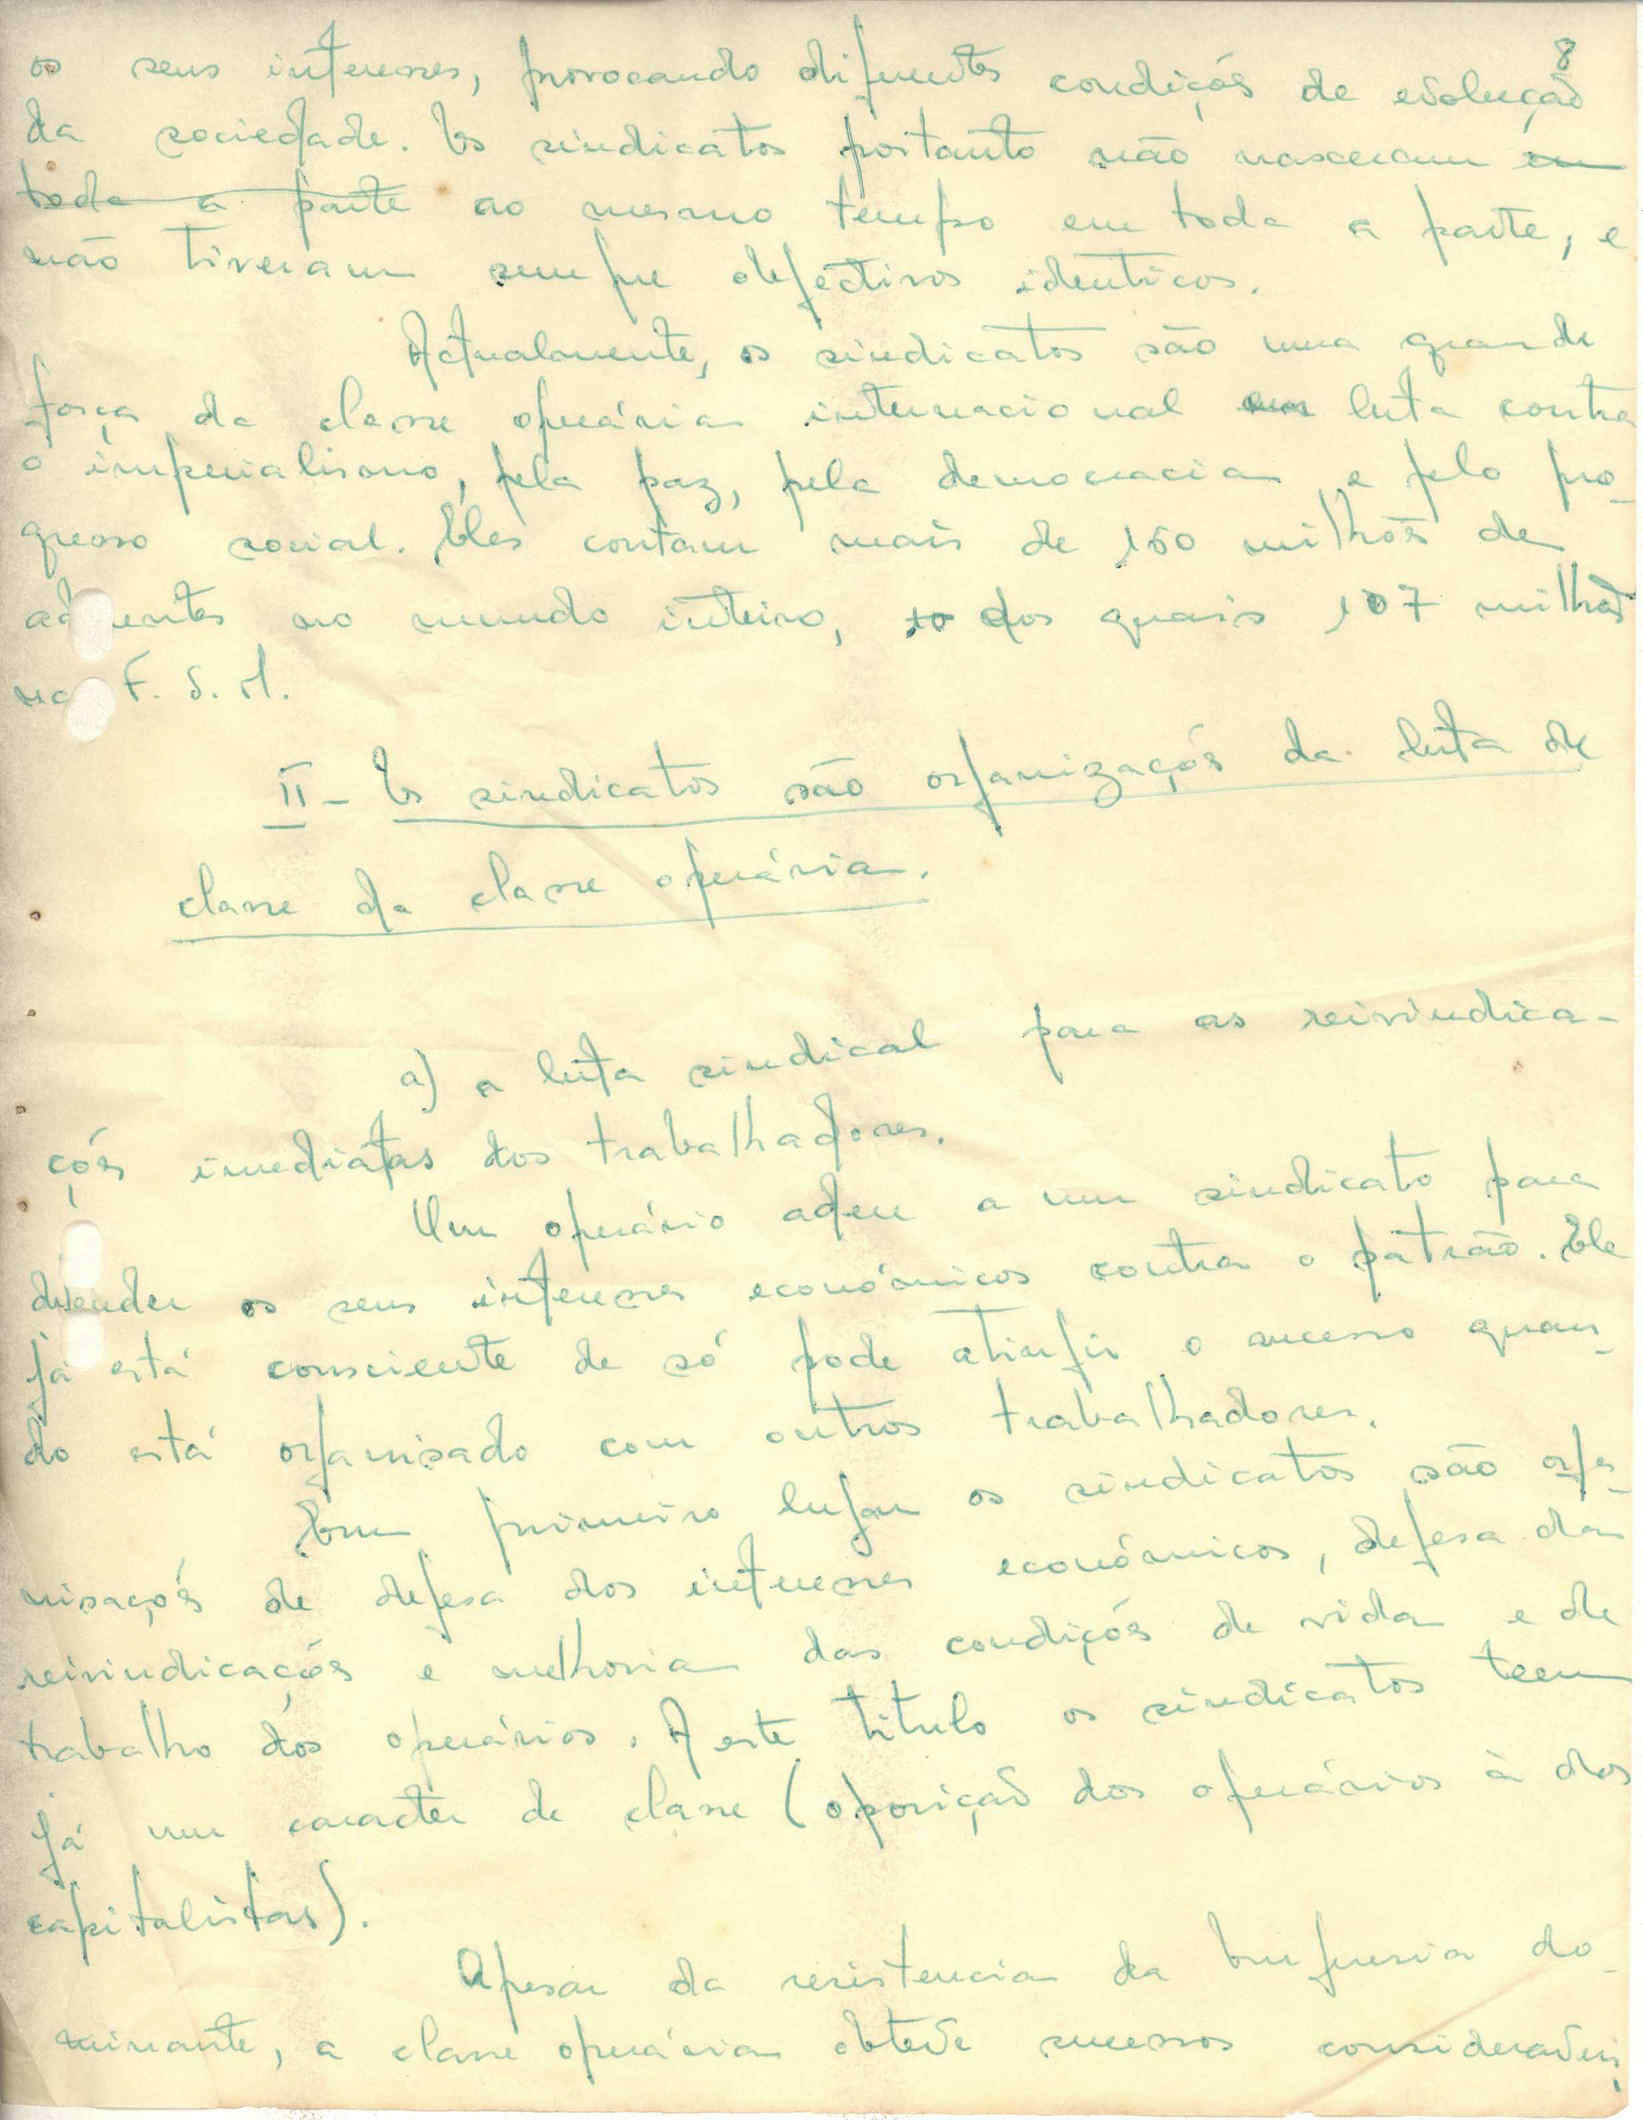 8
os seus interesses, provocando diferentes condições de evolução
da sociedade. Os sindicatos portanto não nasceram em
toda a parte ao mesmo tempo em toda a parte, e
não tiveram sempre objectivos identicos.
Actualmente, os sindicatos são uma grande
força da classe operária internacional luta contra
o imperialismo, pela paz, pela democracia e pelo pro-
gresso social. Eles contam mais de 160 milhões de
aderentes no mundo inteiro, dos quais 107 milhões
na F. S. M.
II - Os sindicatos são organizações da luta de
classe da classe operária.
a) a luta sindical para as reivindica-
ções imediatas dos trabalhadores.
Um operário adere a um sindicato para
defender os seus interesses económicos contra o patrão. Ele
já está consciente de só pode atingir o sucesso quan-
do está organisado com outros trabalhadores.
Em primeiro lugar os sindicatos são orga-
nisações de defesa dos interesses económicos, defesa das
reivindicações e melhoria das condições de vida e de
trabalho dos operários. A este titulo os sindicatos teem
já um caracter de classe (oposição dos operários à dos
capitalistas).
Apesar da resistencia da burguesia do-
minante, a classe operária obteve sucessos consideraveis,